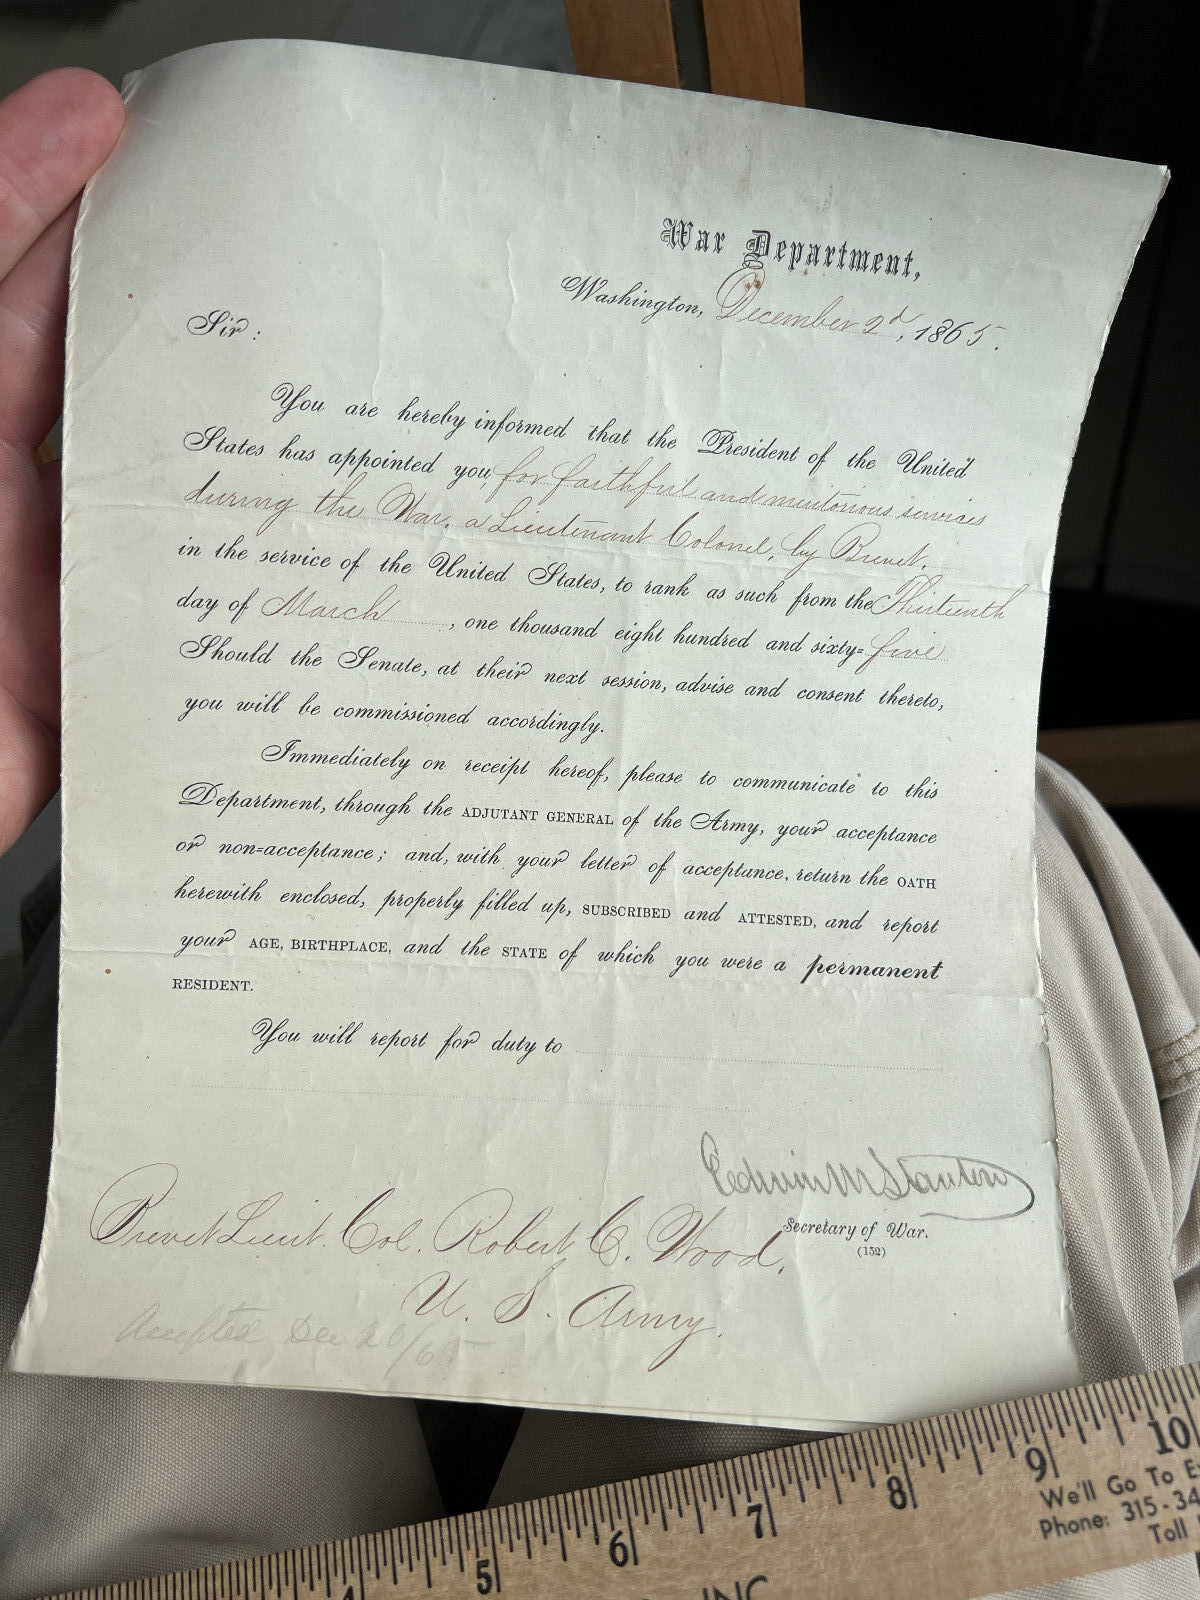 War Department,
Washington, December 2d, 1865.
Sir:
You are hereby informed that the President of the United
States has appointed you, for faithful and meritorious services
during the War, a Lieutenant Colonel, by Brevet,
in the service of the United States, to rank as such from the Thirteenth
day of March, one thousand eight hundred and sixty=five
Should the Senate, at their next session, advise and consent thereto,
you will be commissioned accordingly.
Immediately on receipt hereof, please to communicate to this
Department, through the ADJUTANT GENERAL of the Army, your acceptance
or non=acceptance; and, with your letter of acceptance, return the OATH
herewith enclosed, properly filled up, SUBSCRIBED and ATTESTED, and report
your AGE, BIRTHPLACE, and the STATE of which you were a permanent
RESIDENT.
You will report for duty to
Edwin M Stanton
Secretary of War.
(152)
Brevet Lieut. Col. Robert C. Wood,
U. S. Army.
Accepted Dec 20/65
4 5 6 7 8 9 10
We'll Go To
Phone: 315-34
Toll
INC